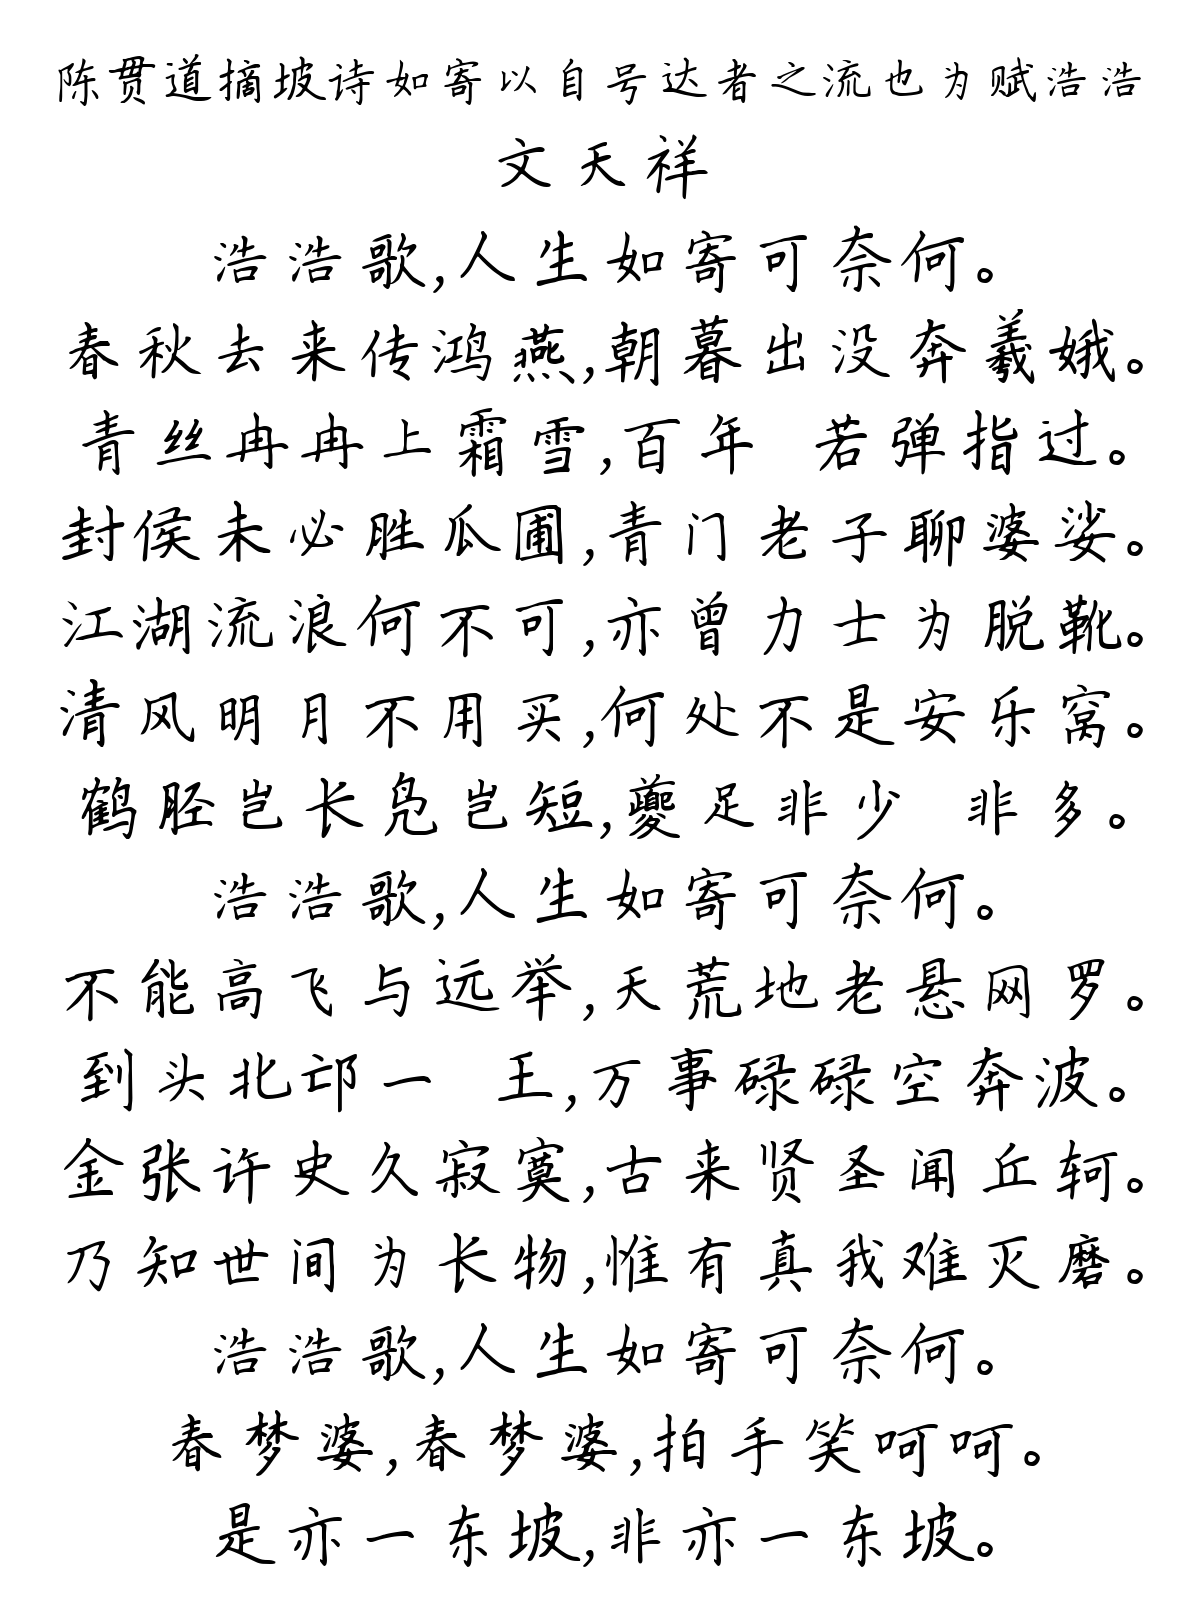 陈贯道摘坡诗如寄以自号达者之流也为赋浩浩
文天祥
浩浩歌,人生如寄可奈何。
春秋去来传鸿燕,朝暮出没奔羲娥。
青丝冉冉上霜雪,百年 若弹指过。
封侯未必胜瓜圃,青门老子聊婆娑。
江湖流浪何不可,亦曾力士为脱靴。
清风明月不用买,何处不是安乐窝。
鹤胫岂长凫岂短,夔足非少 非多。
浩浩歌,人生如寄可奈何。
不能高飞与远举,天荒地老悬网罗。
到头北邙一 王,万事碌碌空奔波。
金张许史久寂寞,古来贤圣闻丘轲。
乃知世间为长物,惟有真我难灭磨。
浩浩歌,人生如寄可奈何。
春梦婆,春梦婆,拍手笑呵呵。
是亦一东坡,非亦一东坡。